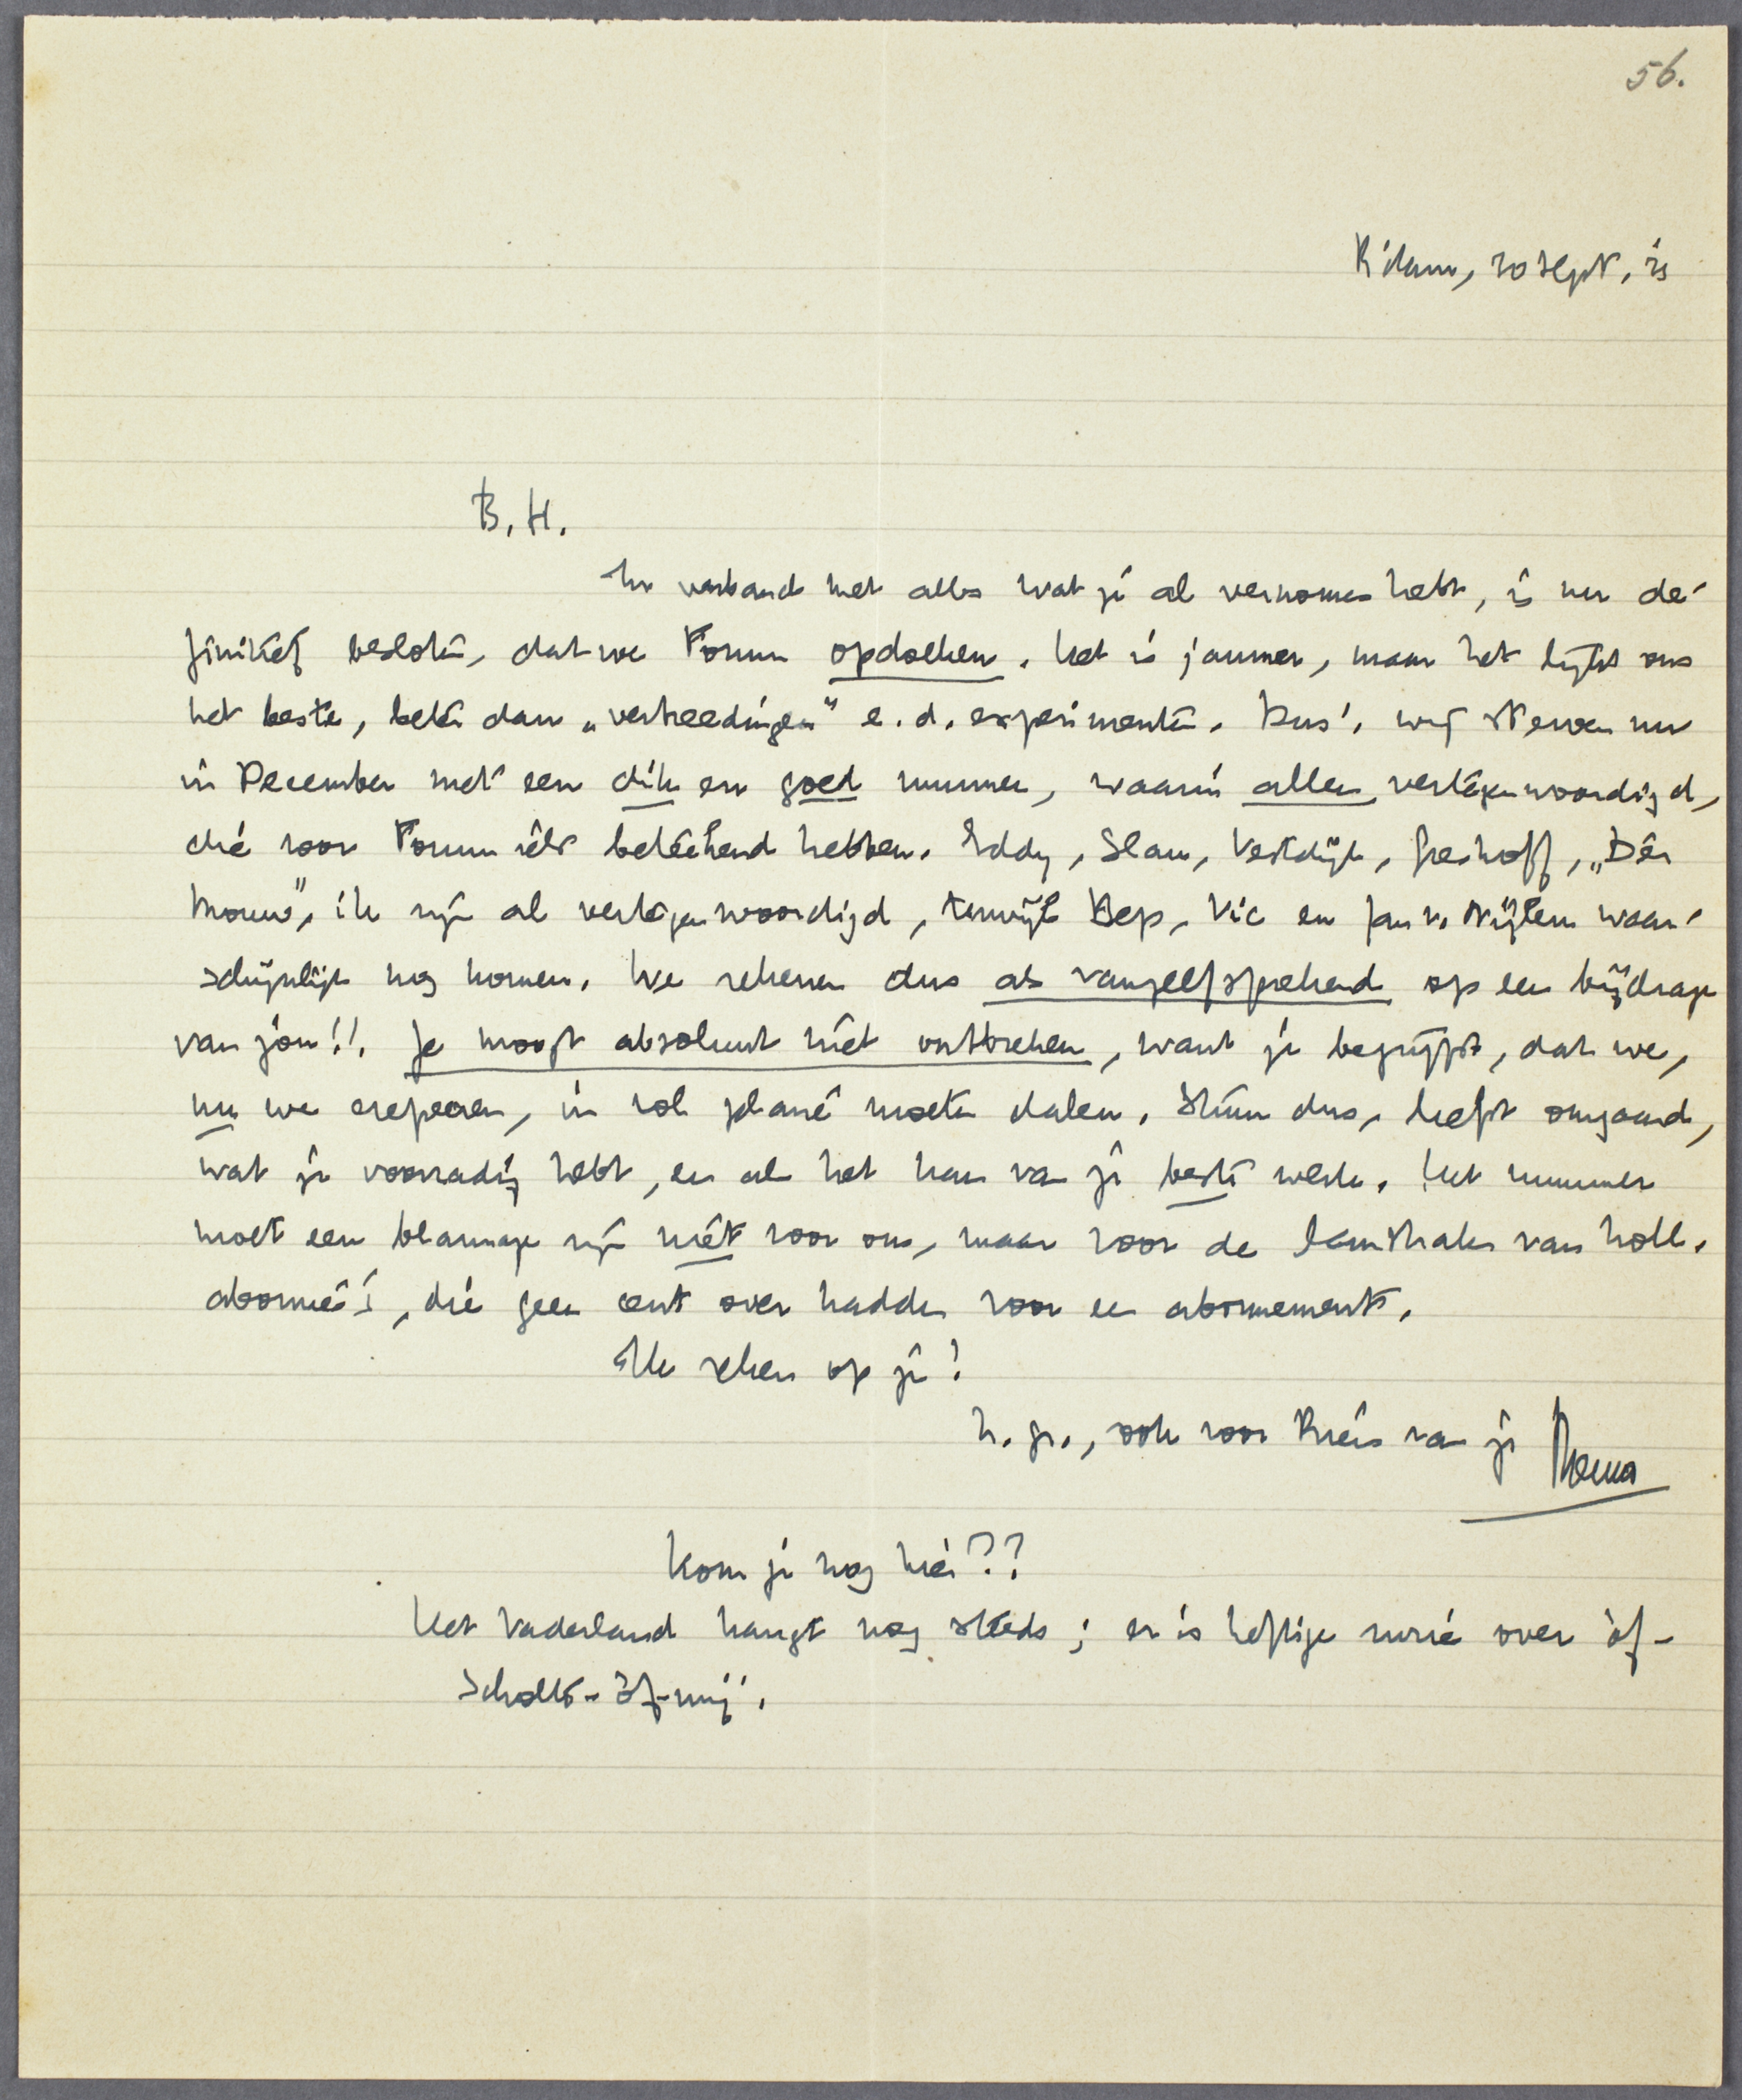 56.
R'dam, 20 Sept. '33
B.H.
In verband met alles wat je al vernomen hebt, is nu de-
finitief besloten, dat we Forum opdoeken. Het is jammer, maar het lijkt ons
het beste, beter dan „verbreedingen” e.d. experimenten. Dus: wij sterven nu
in December met een dik en goed nummer, waarin allen vertegenwoordigd,
die voor Forum iets beteekend hebben. Eddy, Slau, Vestdijk, Greshoff, „Dèr
Mouw”, ik zijn al vertegenwoordigd, terwijl Bep, Vic en Jan v. Nijlen waar-
schijnlijk nog komen. We rekenen dus als vanzelfsprekend op een bijdrage
van jou!! Je moogt absoluut niet ontbreken, want je begrijpt, dat we,
nu we crepeeren, in vol gelaat moeten dalen. Stuur dus, liefst omgaand,
wat je voorradig hebt, en als het kan van je beste werk. Het nummer
moet een blamage zijn niet voor ons, maar voor de lamstralen van holl.
abonné's, die geen cent over hadden voor een abonnement.
Ik reken op je!
h. gr., ook voor Kreis van je Menno
Kom je nog hier??
Het Vaderland hangt nog steeds; er is heftige ruzie over òf-
Scholte-òf-mij.